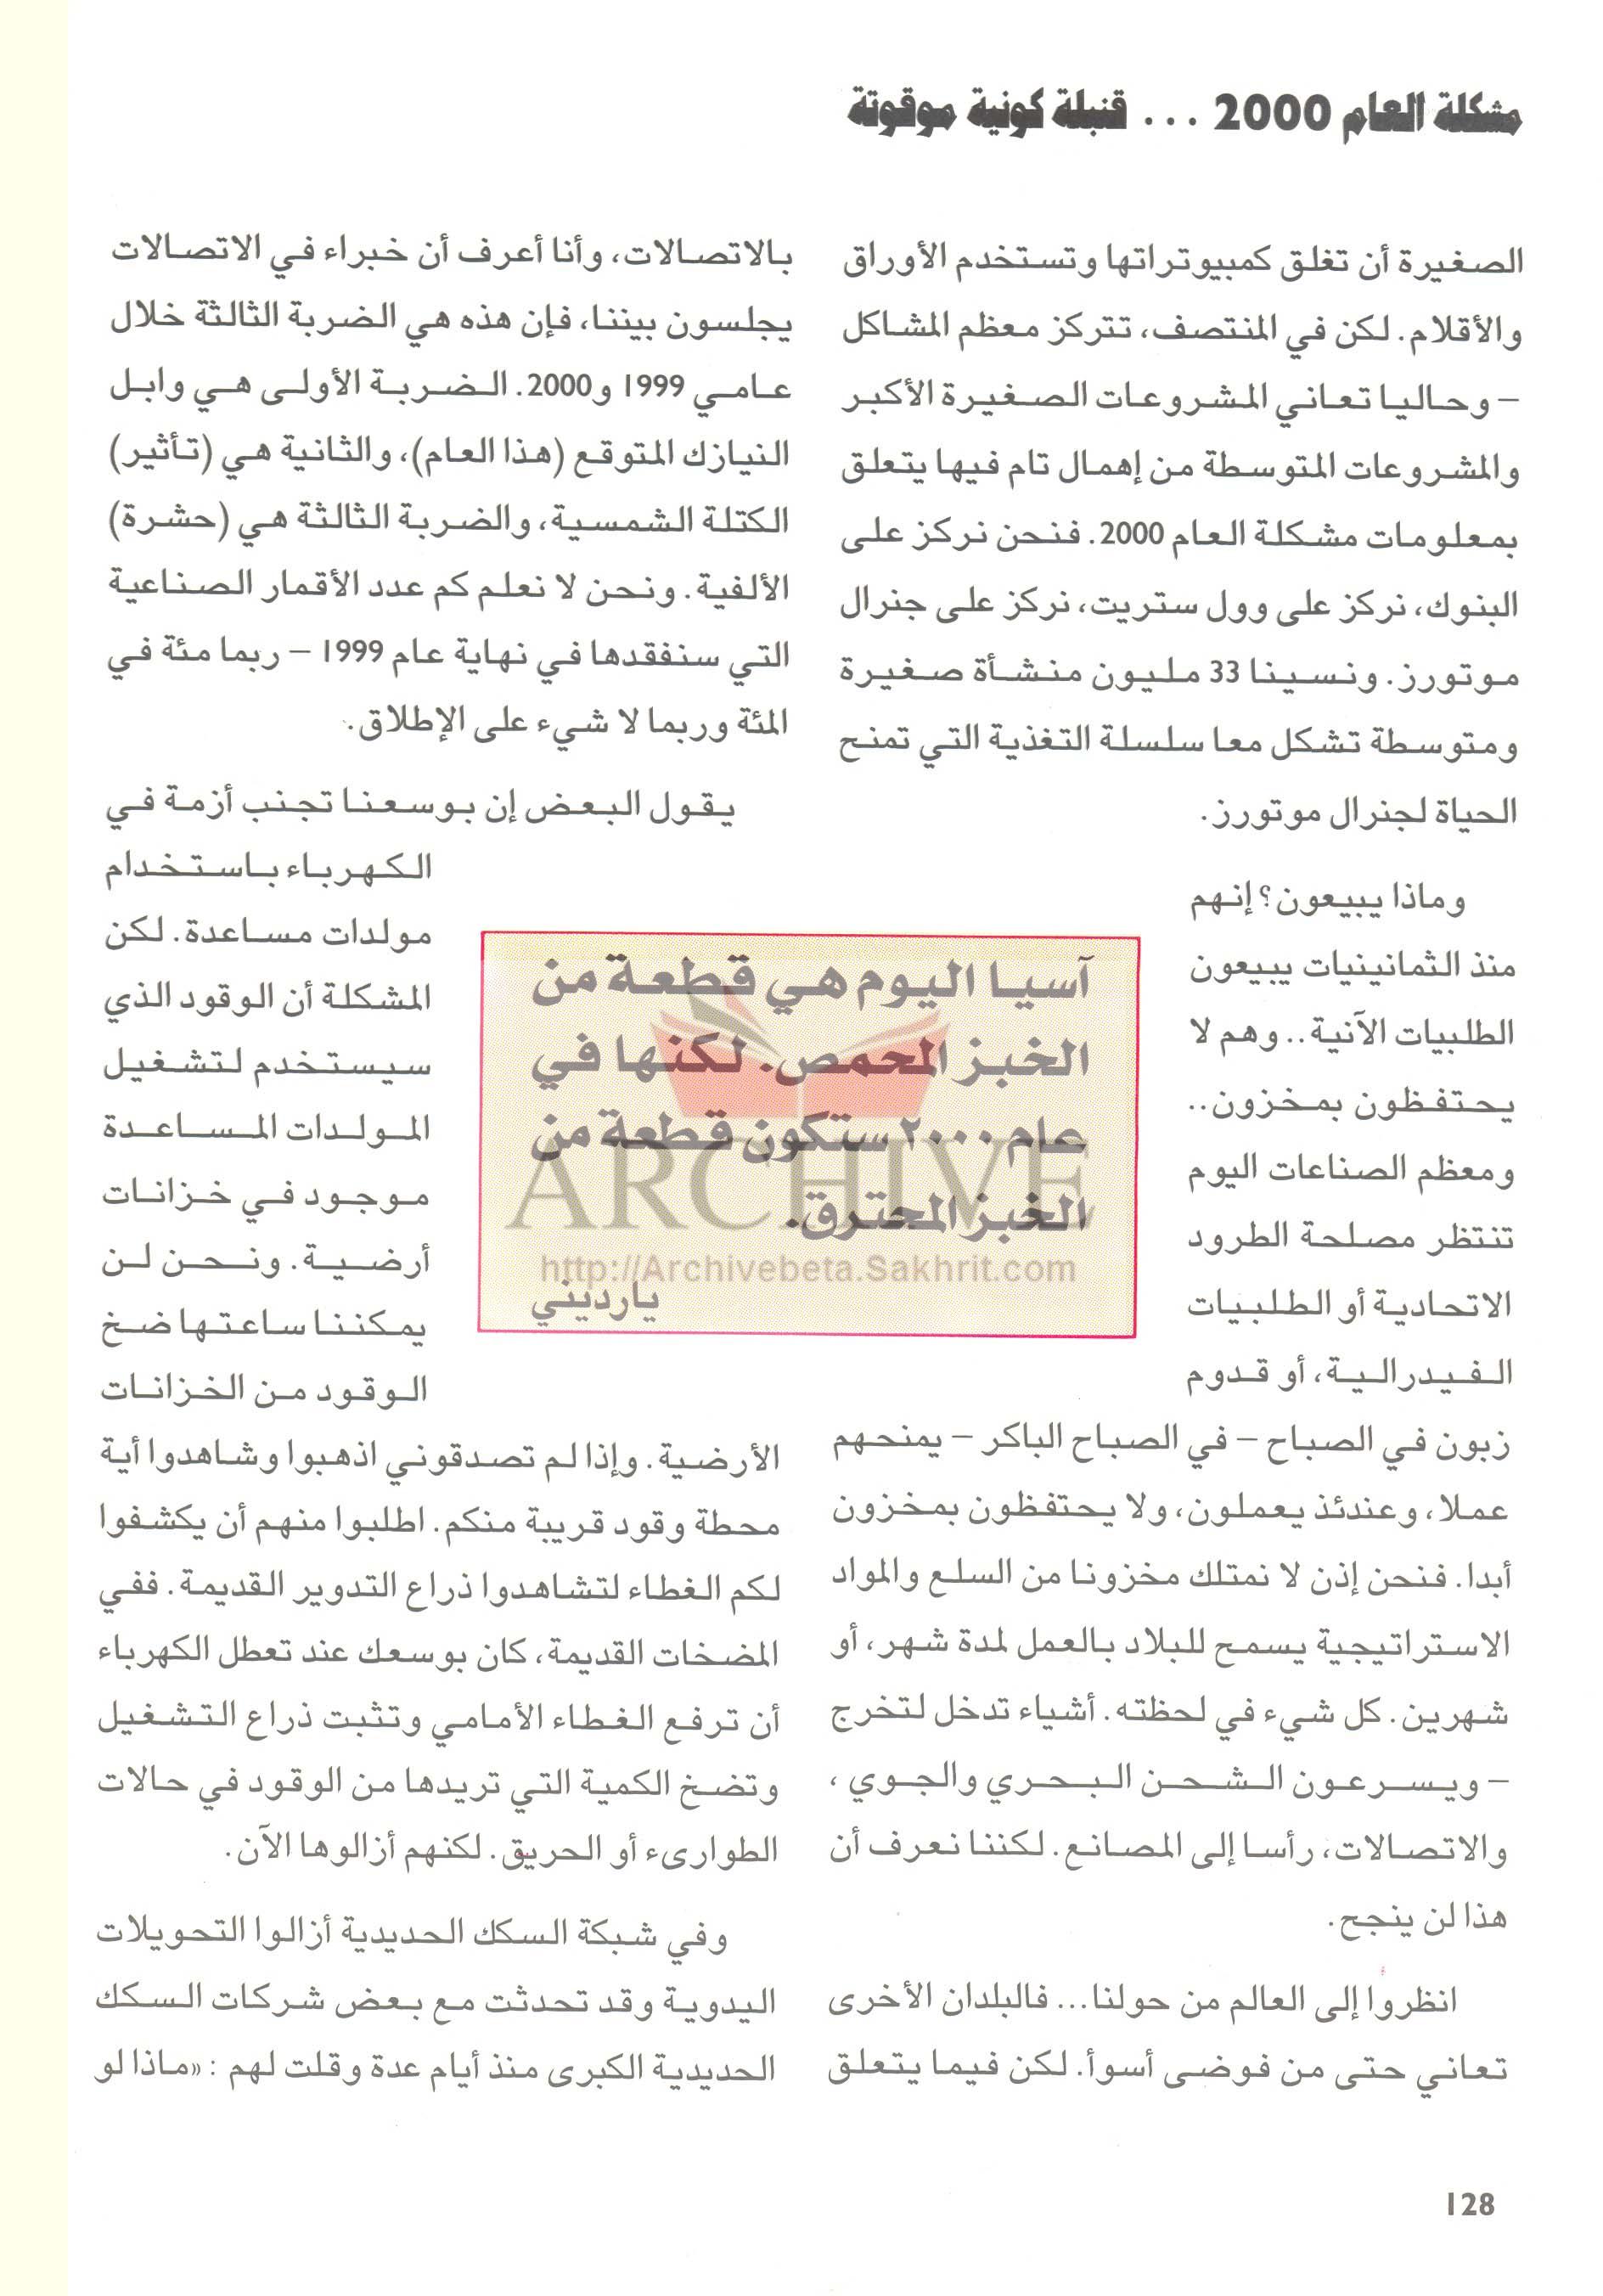 مشكلة العام 2000 ... قنبلة كونية موقوتة
الصغيرة أن تغلق كمبيوتراتها وتستخدم الأوراق
والأقلام. لكن في المنتصف، تتركز معظم المشاكل
– وحاليا تعاني المشروعات الصغيرة الأكبر
والمشروعات المتوسطة من إهمال تام فيها يتعلق
بمعلومات مشكلة العام 2000. فنحن نركز على
البنوك، نركز على وول ستريت، نركز على جنرال
موتورز. ونسينا 33 مليون منشأة صغيرة
ومتوسطة تشكل معا سلسلة التغذية التي تمنح
الحياة لجنرال موتورز.
وماذا يبيعون؟ إنهم
منذ الثمانينيات يبيعون
الطلبيات الآنية.. وهم لا
يحتفظون بمخزون..
ومعظم الصناعات اليوم
تنتظر مصلحة الطرود
الاتحادية أو الطلبيات
الفيدرالية، أو قدوم
زبون في الصباح – في الصباح الباكر – يمنحهم
عملا، وعندئذ يعملون، ولا يحتفظون بمخزون
أبدا. فنحن إذن لا نمتلك مخزونا من السلع والمواد
الاستراتيجية يسمح للبلاد بالعمل لمدة شهر، أو
شهرين. كل شيء في لحظته. أشياء تدخل لتخرج
– ويسرعون الشحن البحري والجوي،
والاتصالات، رأسا إلى المصانع. لكننا نعرف أن
هذا لن ينجح.
انظروا إلى العالم من حولنا... فالبلدان الأخرى
تعاني حتى من فوضى أسوأ. لكن فيما يتعلق
بالاتصالات، وأنا أعرف أن خبراء في الاتصالات
يجلسون بيننا، فإن هذه هي الضربة الثالثة خلال
عامي 1999 و2000. الضربة الأولى هي وابل
النيازك المتوقع (هذا العام)، والثانية هي (تأثير)
الكتلة الشمسية، والضربة الثالثة هي (حشرة)
الألفية. ونحن لا نعلم كم عدد الأقمار الصناعية
التي سنفقدها في نهاية عام 1999 – ربما مئة في
المئة وربما لا شيء على الإطلاق.
يقول البعض إن بوسعنا تجنب أزمة في
الكهرباء باستخدام
مولدات مساعدة. لكن
المشكلة أن الوقود الذي
سيستخدم لتشغيل
المولدات المساعدة
موجود في خزانات
أرضية. ونحن لن
يمكننا ساعتها ضخ
الوقود من الخزانات
الأرضية. وإذا لم تصدقوني اذهبوا وشاهدوا أية
محطة وقود قريبة منكم. اطلبوا منهم أن يكشفوا
لكم الغطاء لتشاهدوا ذراع التدوير القديمة. ففي
المضخات القديمة، كان بوسعك عند تعطل الكهرباء
أن ترفع الغطاء الأمامي وتثبت ذراع التشغيل
وتضخ الكمية التي تريدها من الوقود في حالات
الطوارىء أو الحريق. لكنهم أزالوها الآن.
وفي شبكة السكك الحديدية أزالوا التحويلات
اليدوية وقد تحدثت مع بعض شركات السكك
الحديدية الكبرى منذ أيام عدة وقلت لهم : «ماذا لو
آسيا اليوم هي قطعة من
الخبز المحمص. لكنها في
عام ٢٠٠٠ ستكون قطعة من
الخبز المحترق.
يارديني
ARCHIVE
http://Archivebeta.Sakhrit.com
128